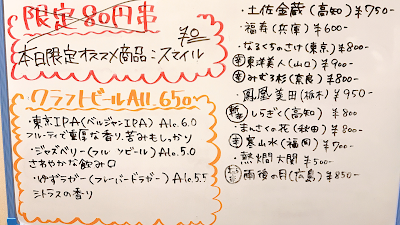 限定80円串
本日限定オススメ商品:スマイル ¥0
クラフトビール All 650-
・東京IPA(ベルジャンIPA) Alc.6.0
フルーティで重厚な香り、苦みもしっかり
・ジャズベリー(フルーツビール) Alc.5.0
さわやかな飲み口
・ゆずラガー(フレーバードラガー) Alc.5.5
シトラスの香り
・土佐金蔵(高知) ¥750-
・福寿(兵庫) ¥600-
・なるぐちのさけ(東京) ¥800-
東洋美人(山口) ¥900-
みむろ杉(奈良) ¥800-
・鳳凰美田(栃木) ¥950-
しらぎく(高知) ¥800
・まんさくの花(秋田) ¥800-
寒山水(福岡) ¥700-
・熱燗 大関 ¥500-
雨後の月(広島) ¥850-